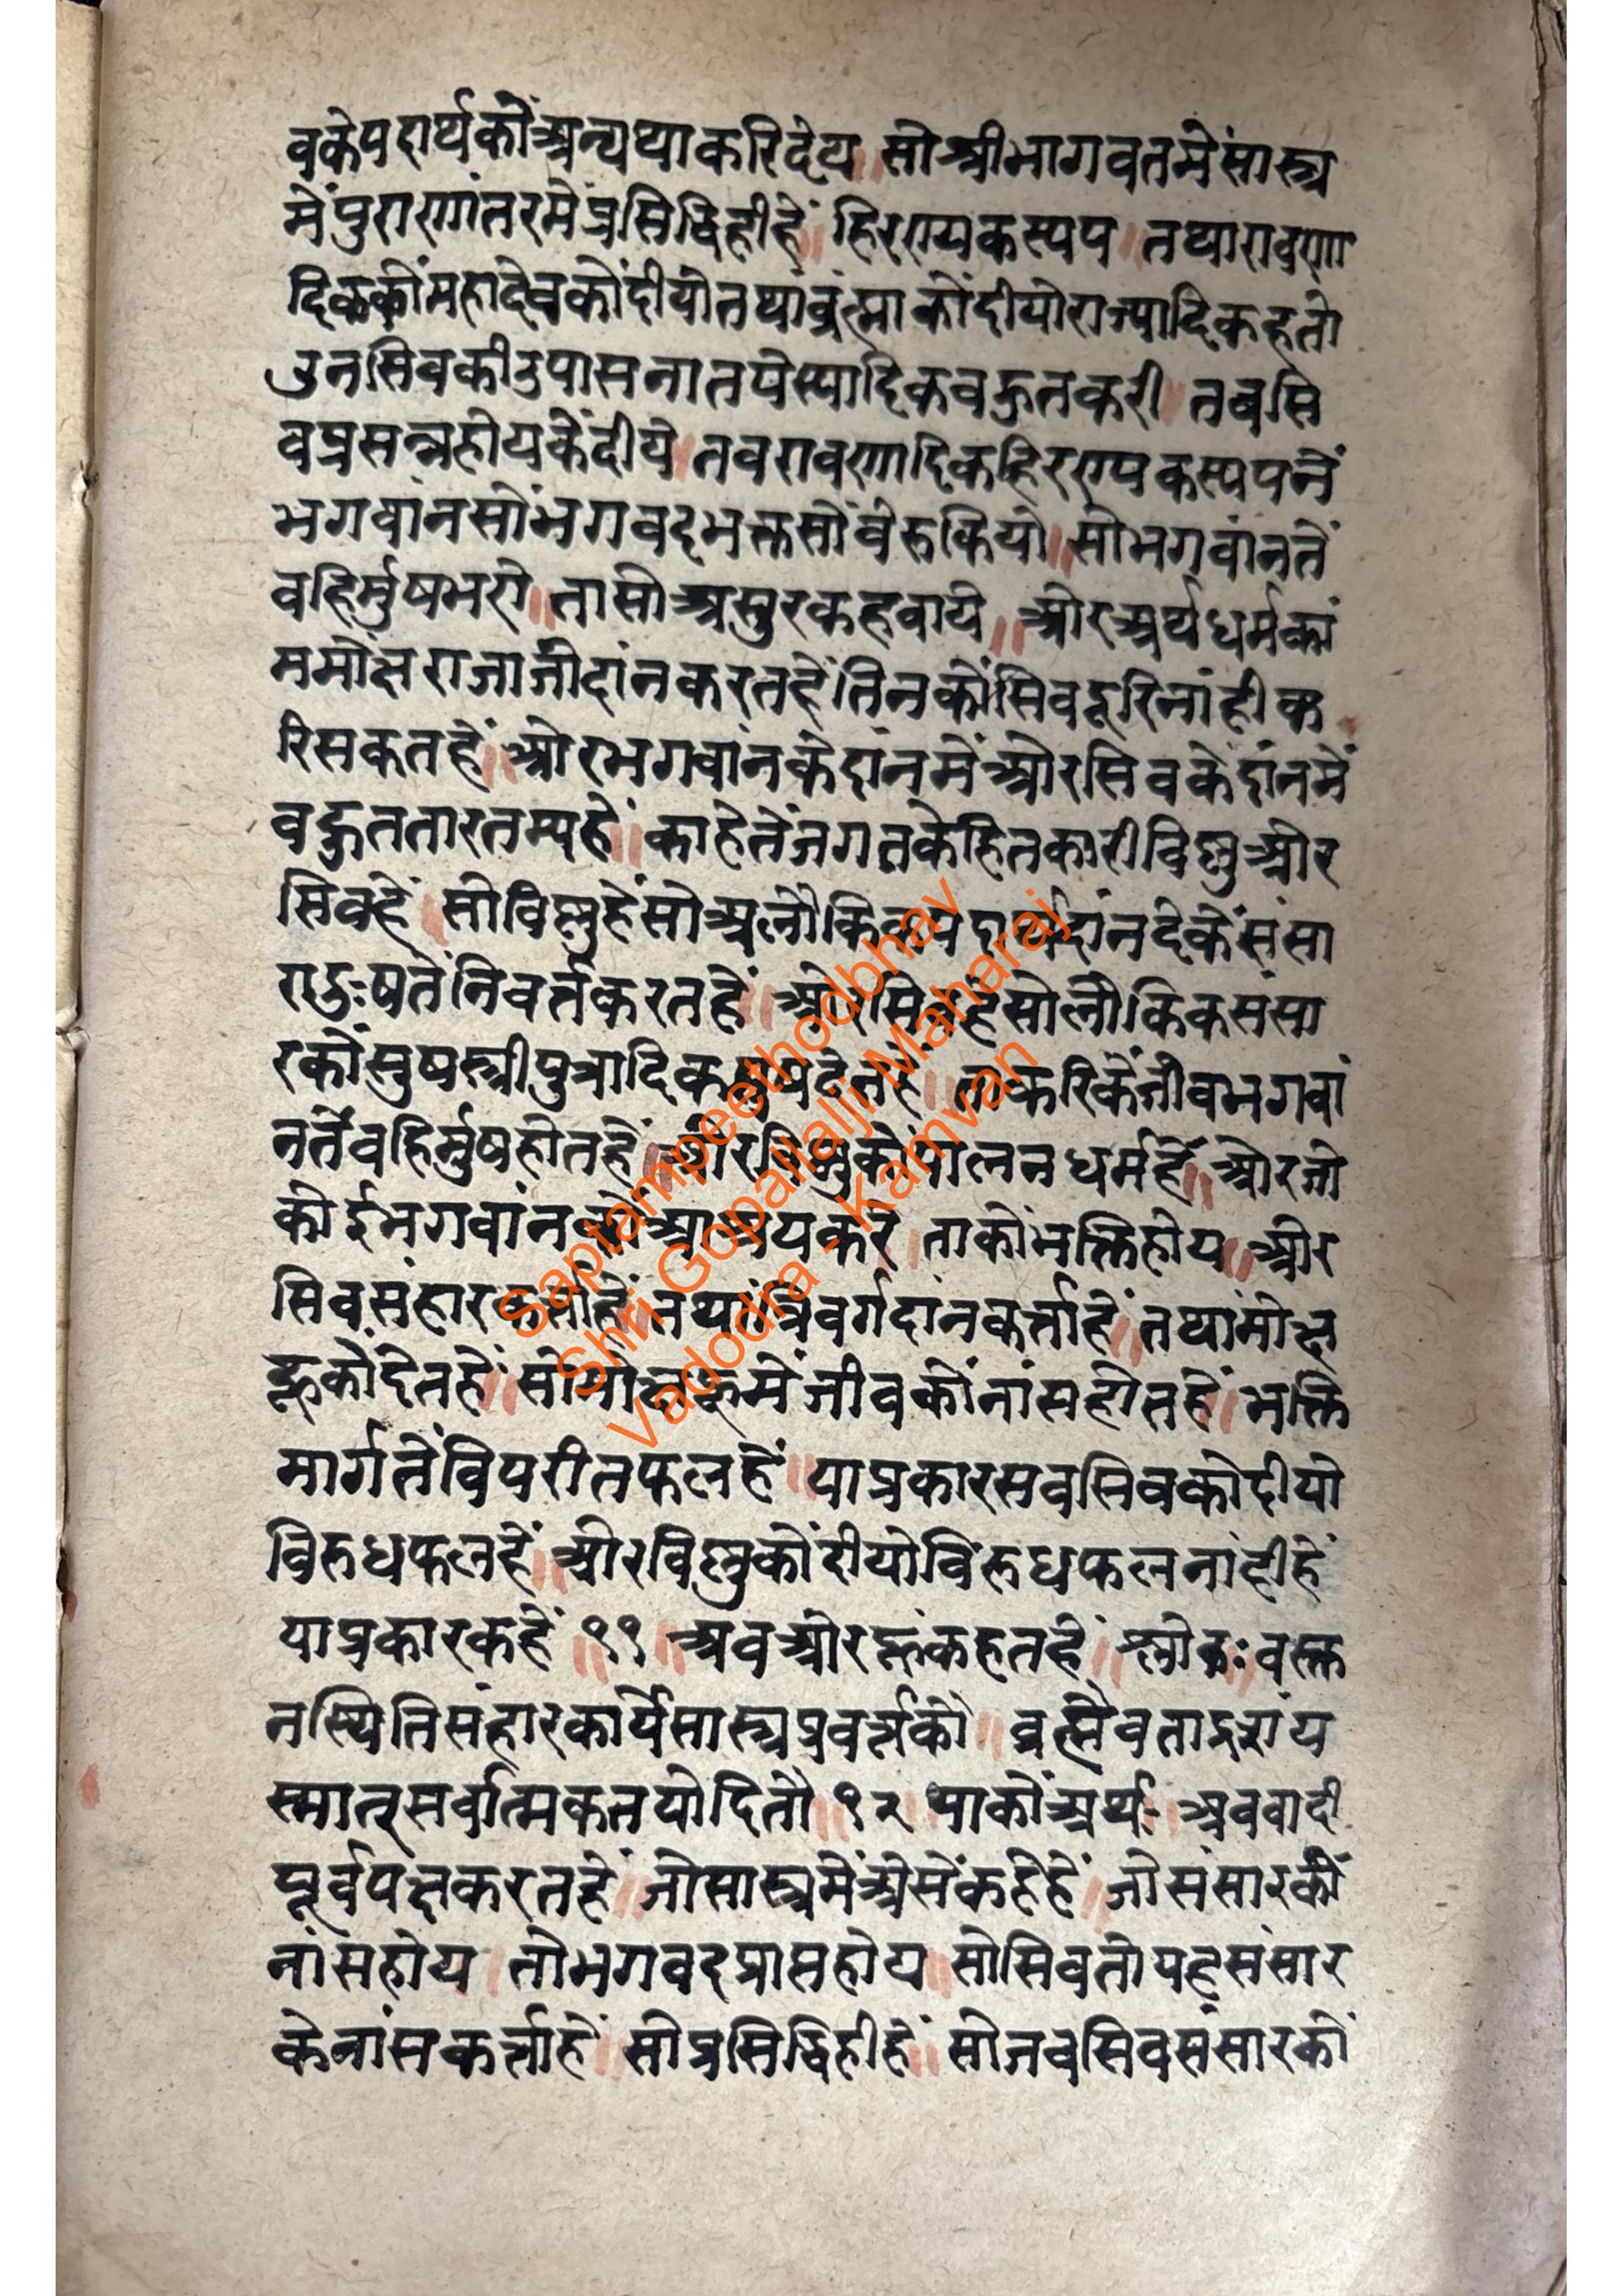 वकेपदार्थकोंअन्यथाकरिदेय॥ सोश्रीभागवतमेंसास्त्र
मेंपुराणांतरमेंप्रसिद्धिहीहें॥ हिरण्यकस्यप॥ तथारावणा
दिककोंमहादेवकोंदीयोतथांब्रह्माकोंदीयोराज्यादिकहतो
उनसिवकीउपासनातपेस्यादिकवहुतकरी॥ तवसि
वप्रसन्नहोयकेंदीये॥ तवरावणादिकहिरण्यकस्यपनें
भगवांनसोंभगवद्भक्तसोंवेरुकियो॥ सोभगवांनतें
वहिर्मुषभये॥ तासोअसुरकहवाये॥ ओरअर्थधर्मकां
ममोक्षराजाजीदांनकरतहेंतिनकोंसिवदूरिनांहीक
रिसकतहें॥ ओरभगवांनकेदांनमेंओरसिवकेदांनमें
वहुततारतम्यहें॥ काहेतेंजगतकेहितकारीविष्णुओर
सिवहें॥ सोविष्णुहेंसोअलौकिकपदार्थदांनदेकेंसंसा
रादुःषतेंनिवर्तकरतहें॥ ओरसिवहेसोलौकिकसंसा
रकोंसुषस्त्रीपुत्रादिकद्रव्यदेतहें॥ ताकरिकेंजीवभगवां
नतेंवहिर्मुषहोतहें॥ ओरविष्णुकोपालनधर्महें॥ ओरजो
कोईभगवांनकोंआश्रयकरे॥ ताकोंभक्तिहोय॥ ओर
सिवसंहारकर्ताहें॥ तथांत्रिवर्गदांनकर्त्ताहें॥ तथांमोक्ष
हूकोंदेतहें॥ सोमोक्षहूमेंजीवकोंनांसहोतहें॥ भक्ति
मार्गतेंविपरीतफलहें॥ याप्रकारसवसिवकोदीयो
विरुधफलहें॥ ओरविष्णुकोंदीयोविरुधफलनांहीहें
याप्रकारकहें॥११॥ अवओरहूंकहतहें॥ श्लोकः॥ वस्तू
नस्थितिसंहारकार्येसास्त्रप्रवर्त्तकौ॥ ब्रह्मैवतादृशंय
स्मात्सर्वात्मकतयोदितौ॥१२॥ याकोंअर्थ॥ अववादी
पूर्वपक्षकरतहें॥ जोसास्त्रमेंअेसेंकहेहें॥ जोसंसारकों
नांसहोय॥ तोभगवद्प्राप्तहोय॥ सोसिवतोयहसंसार
केनांसकर्त्ताहें॥ सोप्रसिद्धिहीहें॥ सोजवसिवसंसारकों
Saptampeethodbhav
Shri Gopallalji Maharaj
Vadodra - Kamvan